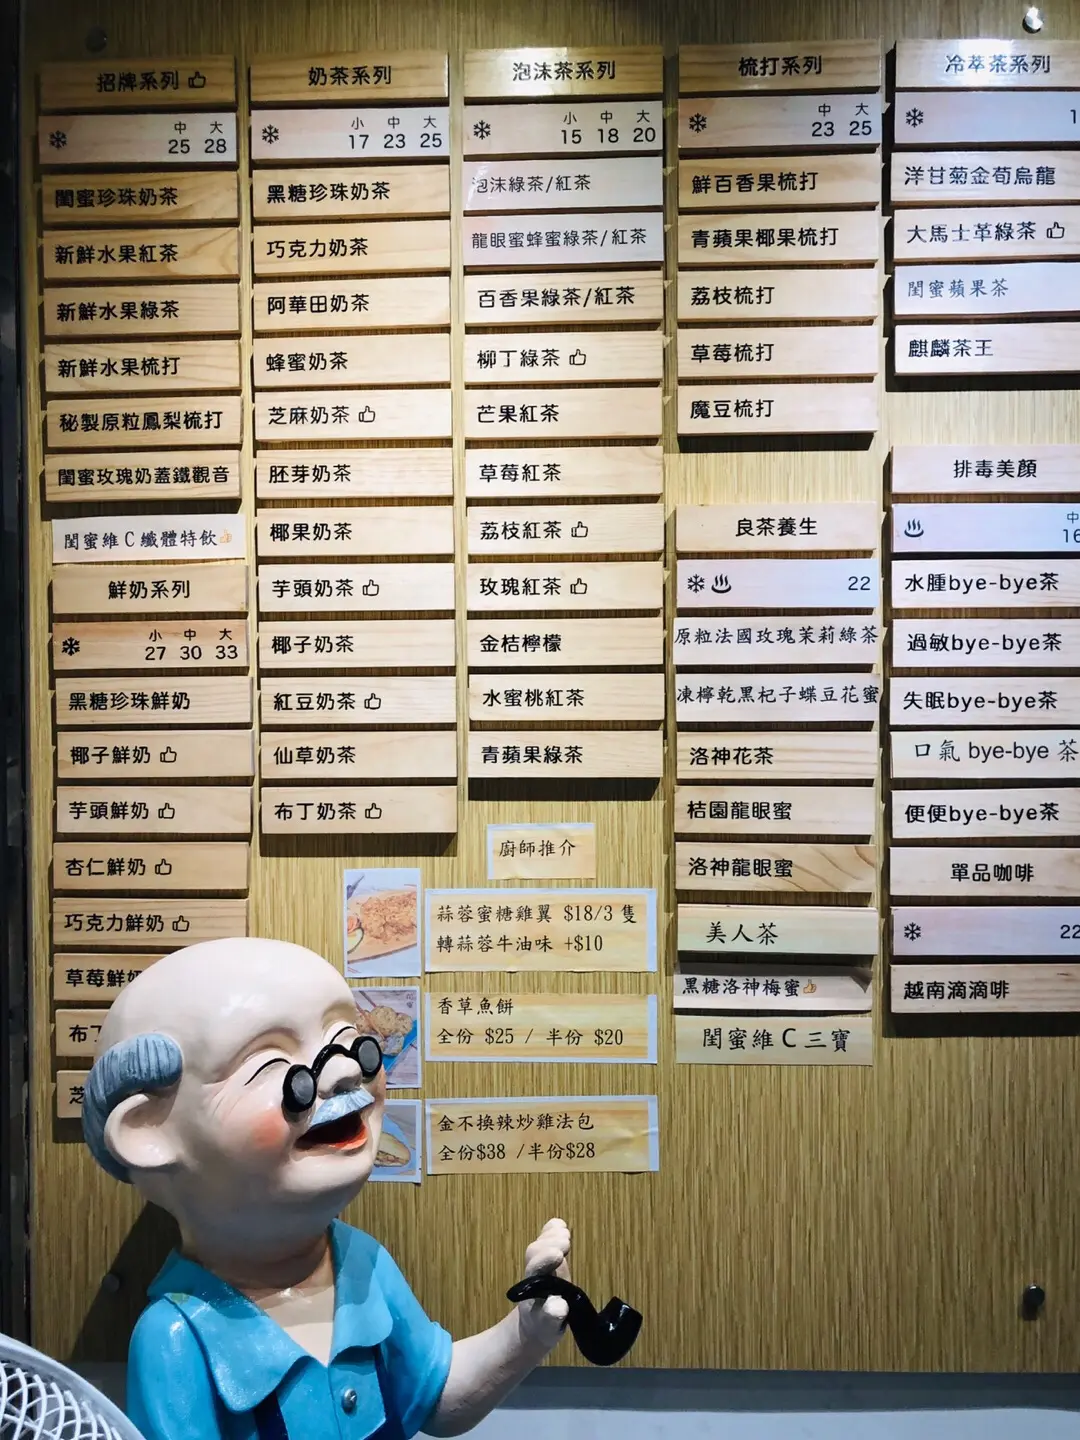 招牌系列
中 大
25 28
閨蜜珍珠奶茶
新鮮水果紅茶
新鮮水果綠茶
新鮮水果梳打
秘製原粒鳳梨梳打
閨蜜玫瑰奶蓋鐵觀音
閨蜜維C纖體特飲
鮮奶系列
小 中 大
27 30 33
黑糖珍珠鮮奶
椰子鮮奶
芋頭鮮奶
杏仁鮮奶
巧克力鮮奶
草莓鮮奶
布丁
芝
奶茶系列
小 中 大
17 23 25
黑糖珍珠奶茶
巧克力奶茶
阿華田奶茶
蜂蜜奶茶
芝麻奶茶
胚芽奶茶
椰果奶茶
芋頭奶茶
椰子奶茶
紅豆奶茶
仙草奶茶
布丁奶茶
泡沫茶系列
小 中 大
15 18 20
泡沫綠茶/紅茶
龍眼蜜蜂蜜綠茶/紅茶
百香果綠茶/紅茶
柳丁綠茶
芒果紅茶
草莓紅茶
荔枝紅茶
玫瑰紅茶
金桔檸檬
水蜜桃紅茶
青蘋果綠茶
廚師推介
蒜蓉蜜糖雞翼 $18/3 隻
轉蒜蓉牛油味 +$10
香草魚餅
全份 $25 / 半份 $20
金不換辣炒雞法包
全份$38 /半份$28
梳打系列
中 大
23 25
鮮百香果梳打
青蘋果椰果梳打
荔枝梳打
草莓梳打
魔豆梳打
良茶養生
22
原粒法國玫瑰茉莉綠茶
凍檸乾黑杞子蝶豆花蜜
洛神花茶
桔園龍眼蜜
洛神龍眼蜜
美人茶
黑糖洛神梅蜜
閨蜜維C三寶
冷萃茶系列
1
洋甘菊金萄烏龍
大馬士革綠茶
閨蜜蘋果茶
麒麟茶王
排毒美顏
中
16
水腫bye-bye茶
過敏bye-bye茶
失眠bye-bye茶
口氣 bye-bye 茶
便便bye-bye茶
單品咖啡
22
越南滴滴啡